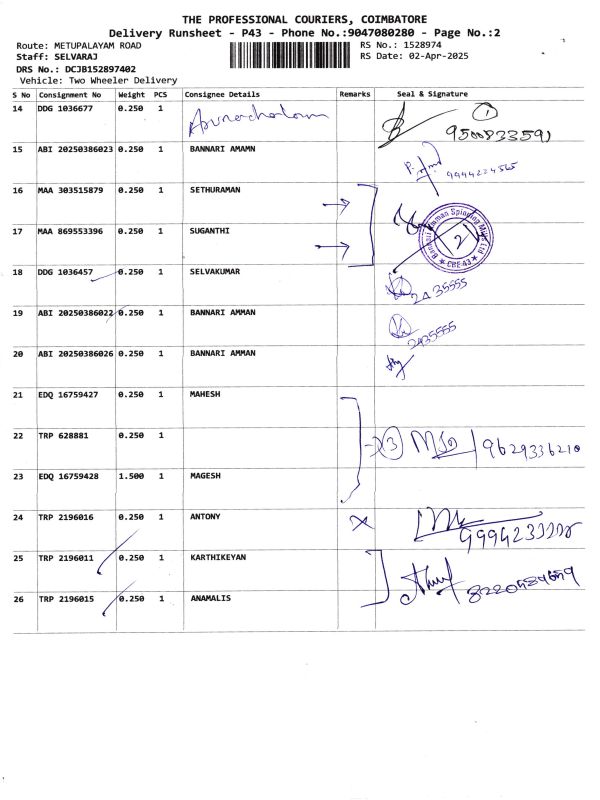 THE PROFESSIONAL COURIERS, COIMBATORE
Delivery Runsheet - P43 - Phone No.:9047080280 - Page No.:2
Route: METUPALAYAM ROAD RS No.: 1528974
Staff: SELVARAJ RS Date: 02-Apr-2025
DRS No.: DCJB152897402
Vehicle: Two Wheeler Delivery
S No Consignment No Weight PCS Consignee Details Remarks Seal & Signature
14 DDG 1036677 0.250 1 Arunachalam 1
15 ABI 20250386023 0.250 1 BANNARI AMAMN
16 MAA 303515879 0.250 1 SETHURAMAN
17 MAA 869553396 0.250 1 SUGANTHI
Bannari Amman Spinning Mills Ltd
2
CBE 43
18 DDG 1036457 0.250 1 SELVAKUMAR 2435555
19 ABI 20250386022 0.250 1 BANNARI AMMAN 2435555
20 ABI 20250386026 0.250 1 BANNARI AMMAN
21 EDQ 16759427 0.250 1 MAHESH
22 TRP 628881 0.250 1 3 9629336210
23 EDQ 16759428 1.500 1 MAGESH
24 TRP 2196016 0.250 1 ANTONY
25 TRP 2196011 0.250 1 KARTHIKEYAN
26 TRP 2196015 0.250 1 ANAMALIS